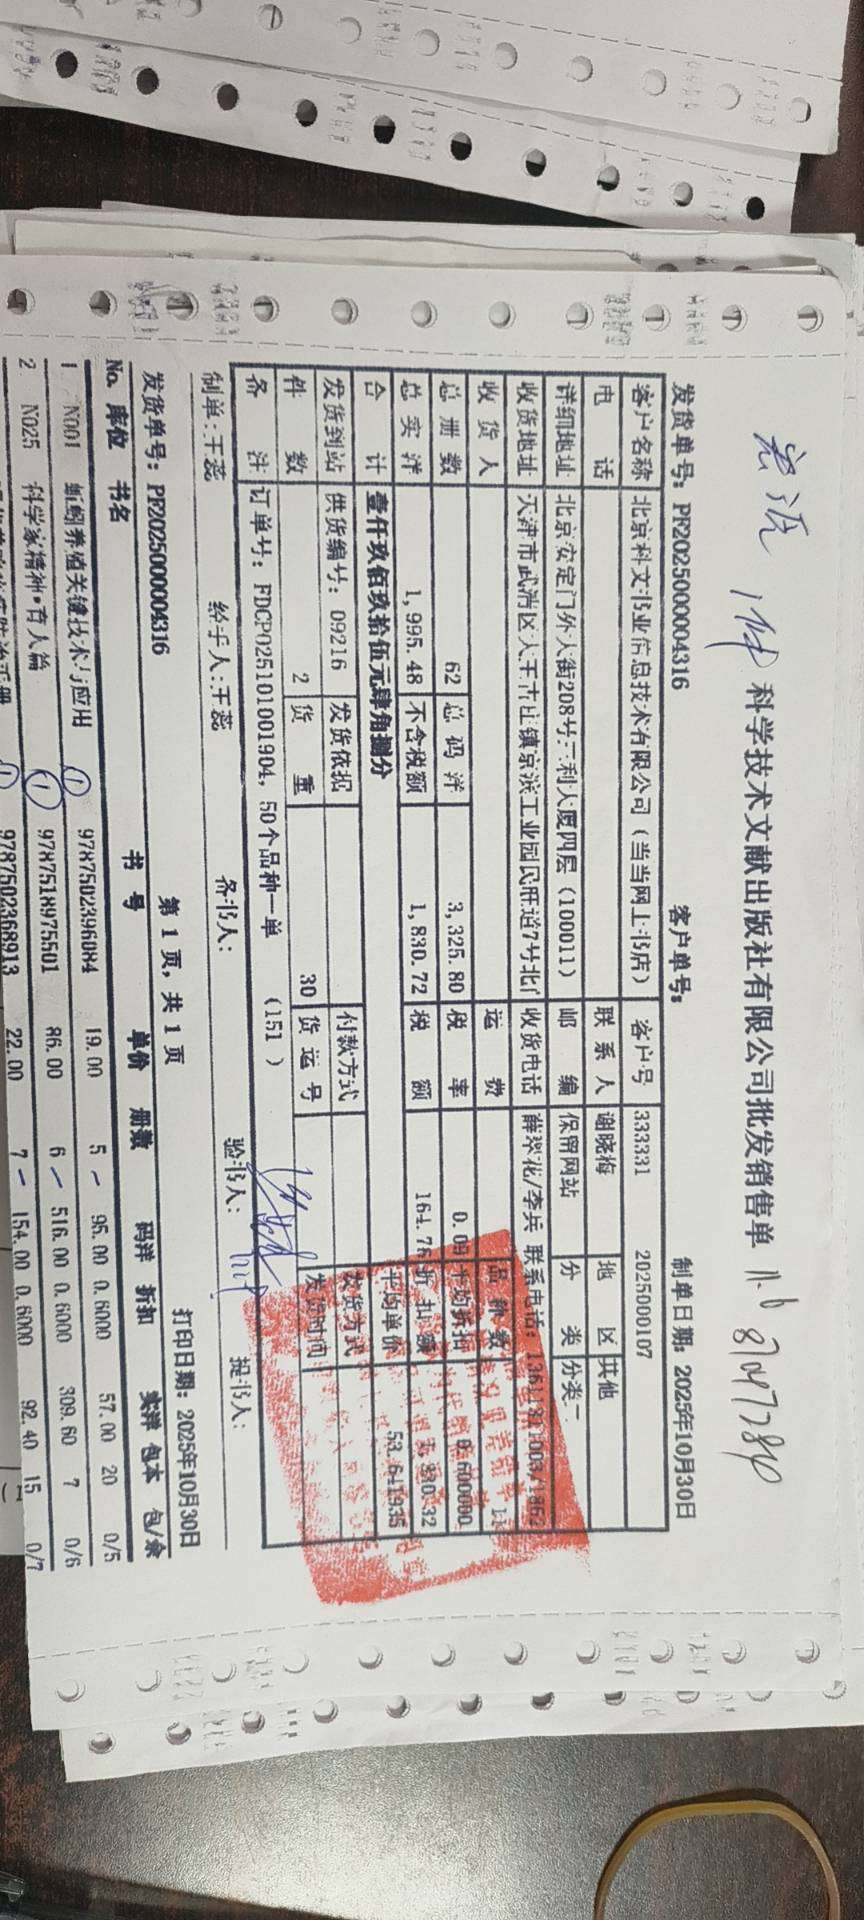 科学技术文献出版社有限公司批发销售单
发货单号: PF2025000004316 客户单号: 制单日期: 2025年10月30日
客户名称 北京科文书业信息技术有限公司（当当网上书店） 客户号 333331 2025000107
电话 联系人 谢晓梅 地区 其他
详细地址 北京安定门外大街208号三利大厦四层（100011） 邮编 保留网站 分类 分类二
收货地址 天津市武清区大王古庄镇京滨工业园民旺道7号北门 收货电话 薛翠花/李兵 联系电话:
收货人 运费 品种数 11
总册数 62 总码洋 3,325.80 税率 0.09 平均折扣 0.600000
总实洋 1,995.48 不含税额 1,830.72 税额 164.76 折扣额 1,330.32
合计 壹仟玖佰玖拾伍元肆角捌分 平均单价 53.641935
发货到站 供货编号: 09216 发货依据 付款方式 发货方式
件数 2 货重 30 货运号 发货时间
备注 订单号: FDCP0251010019​04, 50个品种一单 (151 )
制单:王蕊 经手人:王蕊 各书人: 验书人: 提书人:
第 1 页, 共 1 页
发货单号: PF2025000004316 打印日期: 2025年10月30日
No. 库位 书名 书号 单价 册数 码洋 折扣 实洋 包本 包/余
1 N001 蚯蚓养殖关键技术与应用 ① 9787502396084 19.00 5 95.00 0.6000 57.00 20 0/5
2 N025 科学家精神·育人篇 ① 9787518975501 86.00 6 516.00 0.6000 309.60 7 0/6
① 9787502368913 22.00 7 154.00 0.6000 92.40 15 0/7